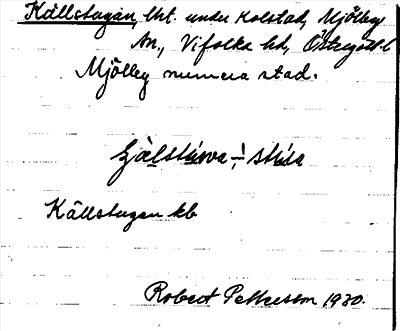 Källstugan, lht. under Kolstad, Mjölby
sn., Vifolka hd, Östergötl.
Mjölby numera stad.
Källstugan kb
Robert Pettersson 1930.